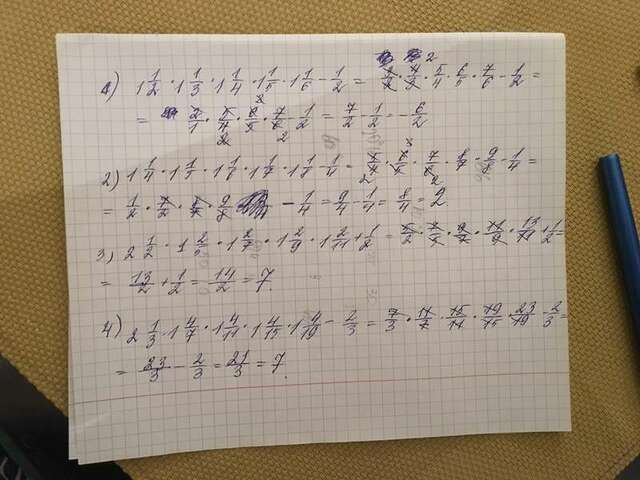 1) 1 1/2 · 1 1/3 · 1 1/4 · 1 1/5 · 1 1/6 - 1/2 = 3/2 · 4/3 · 5/4 · 6/5 · 7/6 - 1/2 =
= 2/1 · 5/4 · 6/5 · 7/6 - 1/2 = 7/2 - 1/2 = - 6/2
2) 1 1/4 · 1 1/5 · 1 1/6 · 1 1/7 · 1 1/8 - 1/4 = 5/4 · 6/5 · 7/6 · 8/7 · 9/8 - 1/4 =
- 1/4 = 9/4 - 1/4 = 8/4 = 2
3) 2 1/2 · 1 2/5 · 1 2/7 · 1 2/9 · 1 2/11 + 1/2 = 5/2 · 7/5 · 9/7 · 11/9 · 13/11 + 1/2 =
= 13/2 + 1/2 = 14/2 = 7.
4) 2 1/3 · 1 4/7 · 1 4/11 · 1 4/15 · 1 4/19 - 2/3 = 7/3 · 11/7 · 15/11 · 19/15 · 23/19 - 2/3 =
= 23/3 - 2/3 = 21/3 = 7.